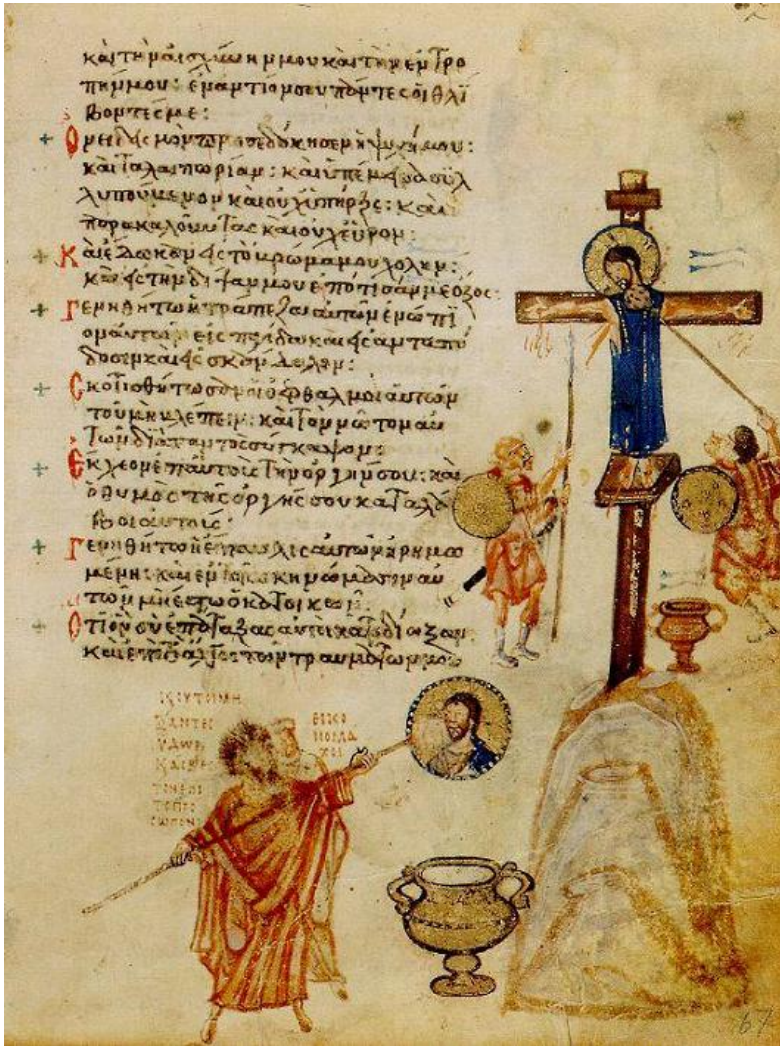 καὶ τὴν αἰσχύνην μου καὶ τὴν ἐντρο
πήν μου: ἐναντίον σου πάντες οἱ θλί
βοντές με:
Ὀνειδισμὸν προσεδόκησεν ἡ ψυχή μου:
καὶ ταλαιπωρίαν: καὶ ὑπέμεινα συλ
λυπούμενον καὶ οὐχ ὑπῆρξε: καὶ
παρακαλοῦντας καὶ οὐχ εὗρον:
Καὶ ἔδωκαν εἰς τὸ βρῶμά μου χολήν:
καὶ εἰς τὴν δίψαν μου ἐπότισάν με ὄξος:
Γενηθήτω ἡ τράπεζα αὐτῶν ἐνώπι
ον αὐτῶν εἰς παγίδα καὶ εἰς ἀνταπό
δοσιν καὶ εἰς σκάνδαλον:
Σκοτισθήτωσαν οἱ ὀφθαλμοὶ αὐτῶν
τοῦ μὴ βλέπειν: καὶ τὸν νῶτον αὐ
τῶν διὰ παντὸς σύγκαμψον:
Ἔκχεον ἐπ' αὐτοὺς τὴν ὀργήν σου: καὶ
ὁ θυμὸς τῆς ὀργῆς σου καταλά
βοι αὐτούς:
Γενηθήτω ἡ ἔπαυλις αὐτῶν ἠρημω
μένη: καὶ ἐν τοῖς σκηνώμασιν αὐ
τῶν μὴ ἔστω ὁ κατοικῶν:
Ὅτι ὃν σὺ ἐπάταξας αὐτοὶ κατεδίωξαν
καὶ ἐπὶ τὸ ἄλγος τῶν τραυμάτων μου
ΞΑΝΤΕΣ
ΥΔΩΡ
ΤΟ ΠΡΟΣ
ΩΠΟΝ
ΕΙΚΟ
ΝΟΜΑ
ΧΟΙ
67